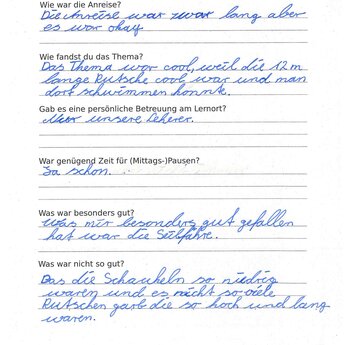 Wie war die Anreise?
Die Anreise war zwar lang aber
es war okay
Wie fandst du das Thema?
Das Thema war cool, weil die 12 m
lange Rutsche cool war und man
dort schwimmen konnte.
Gab es eine persönliche Betreuung am Lernort?
Nur unsere Leherer.
War genügend Zeit für (Mittags-)Pausen?
Ja schon.
Was war besonders gut?
Was mir besonders gut gefallen
hat war die Seilfähre.
Was war nicht so gut?
Das die Schaukeln so niedrig
waren und es nicht so viele
Rutschen garb die so hoch und lang
waren.